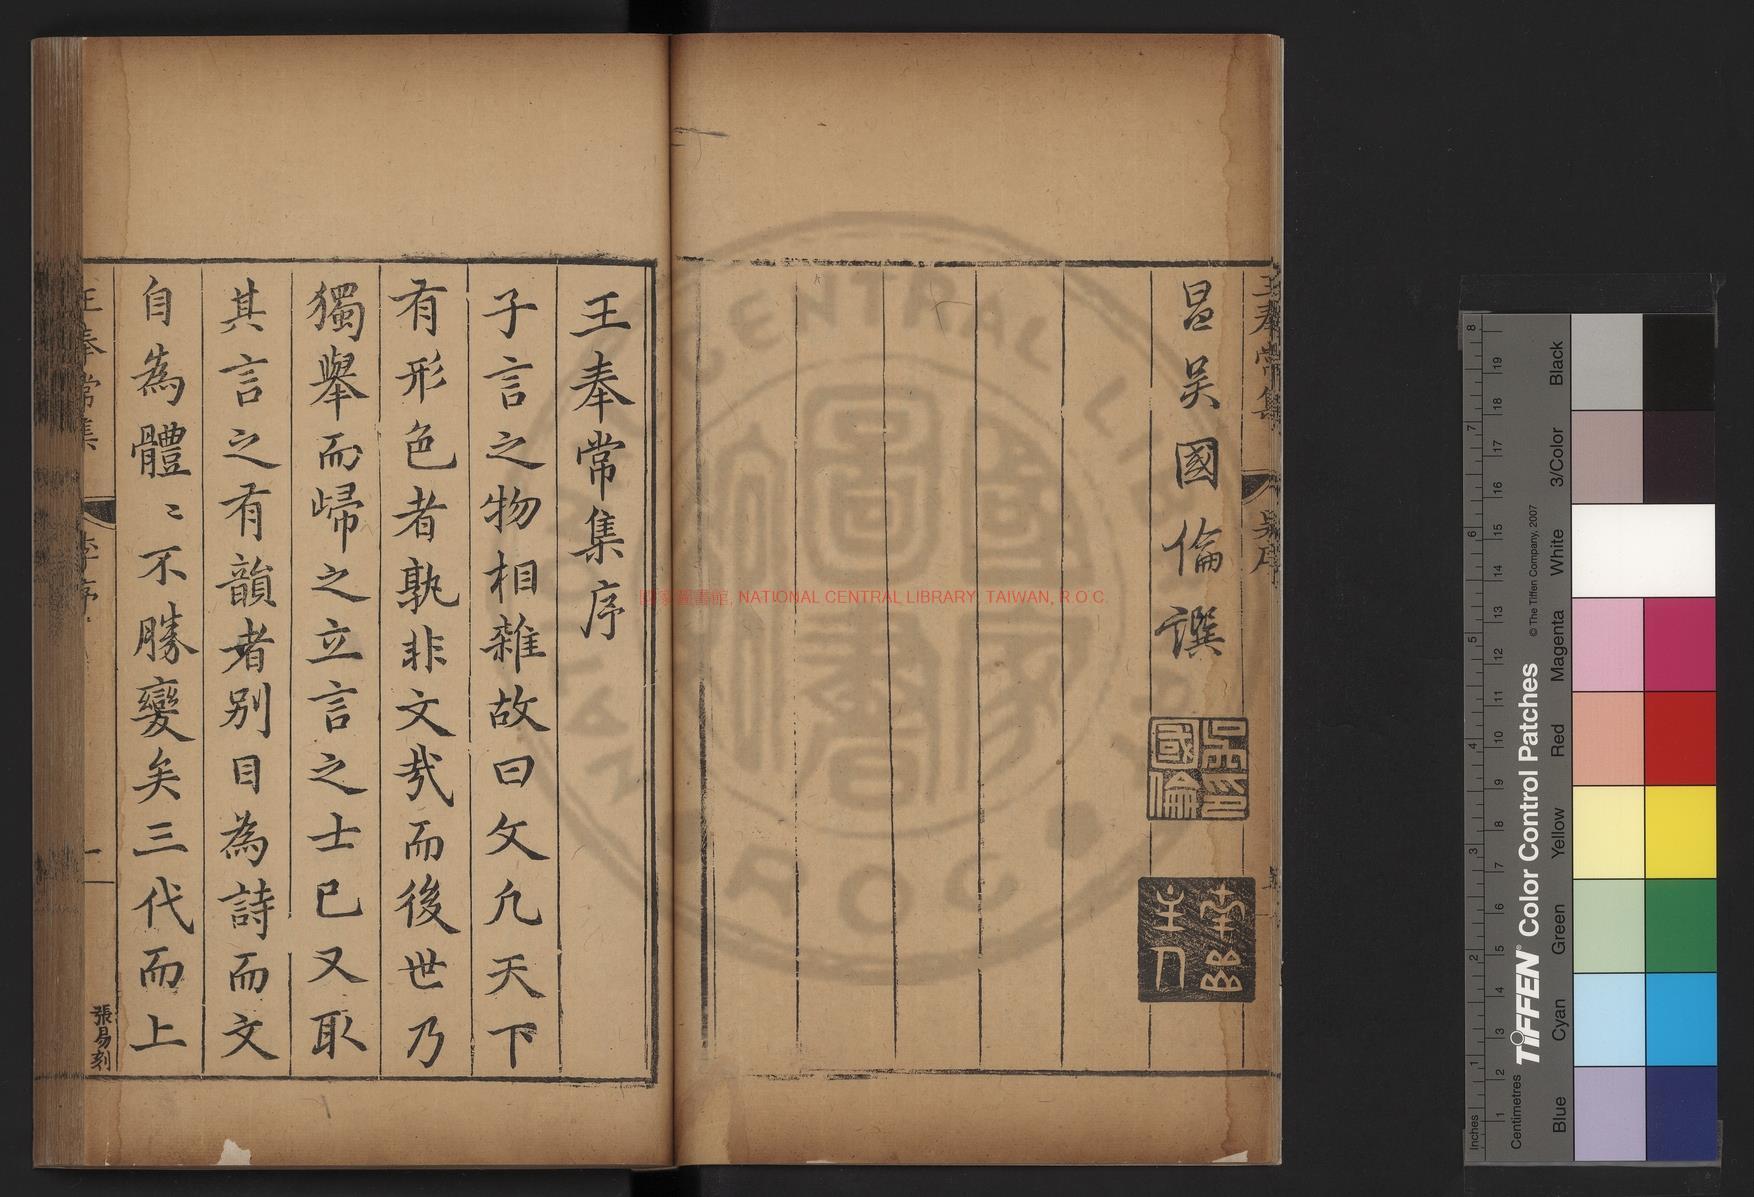 王奉常集
吳序
昌吳國倫譔
吳國倫印
王奉常集序
子言之物相雜故曰文凢天下
有形色者孰非文㢤而後世乃
獨舉而歸之立言之士已又取
其言之有韻者别目為詩而文
自為體〻不勝變矣三代而上
王奉常集
李序
一
張易刻
國家圖書館, NATIONAL CENTRAL LIBRARY, TAIWAN, R.O.C.
TIFFEN® Color Control Patches
© The Tiffen Company, 2007
Inches
Centimetres
Blue
Cyan
Green
Yellow
Red
Magenta
White
3/Color
Black
1
2
3
4
5
6
7
8
1
2
3
4
5
6
7
8
9
10
11
12
13
14
15
16
17
18
19